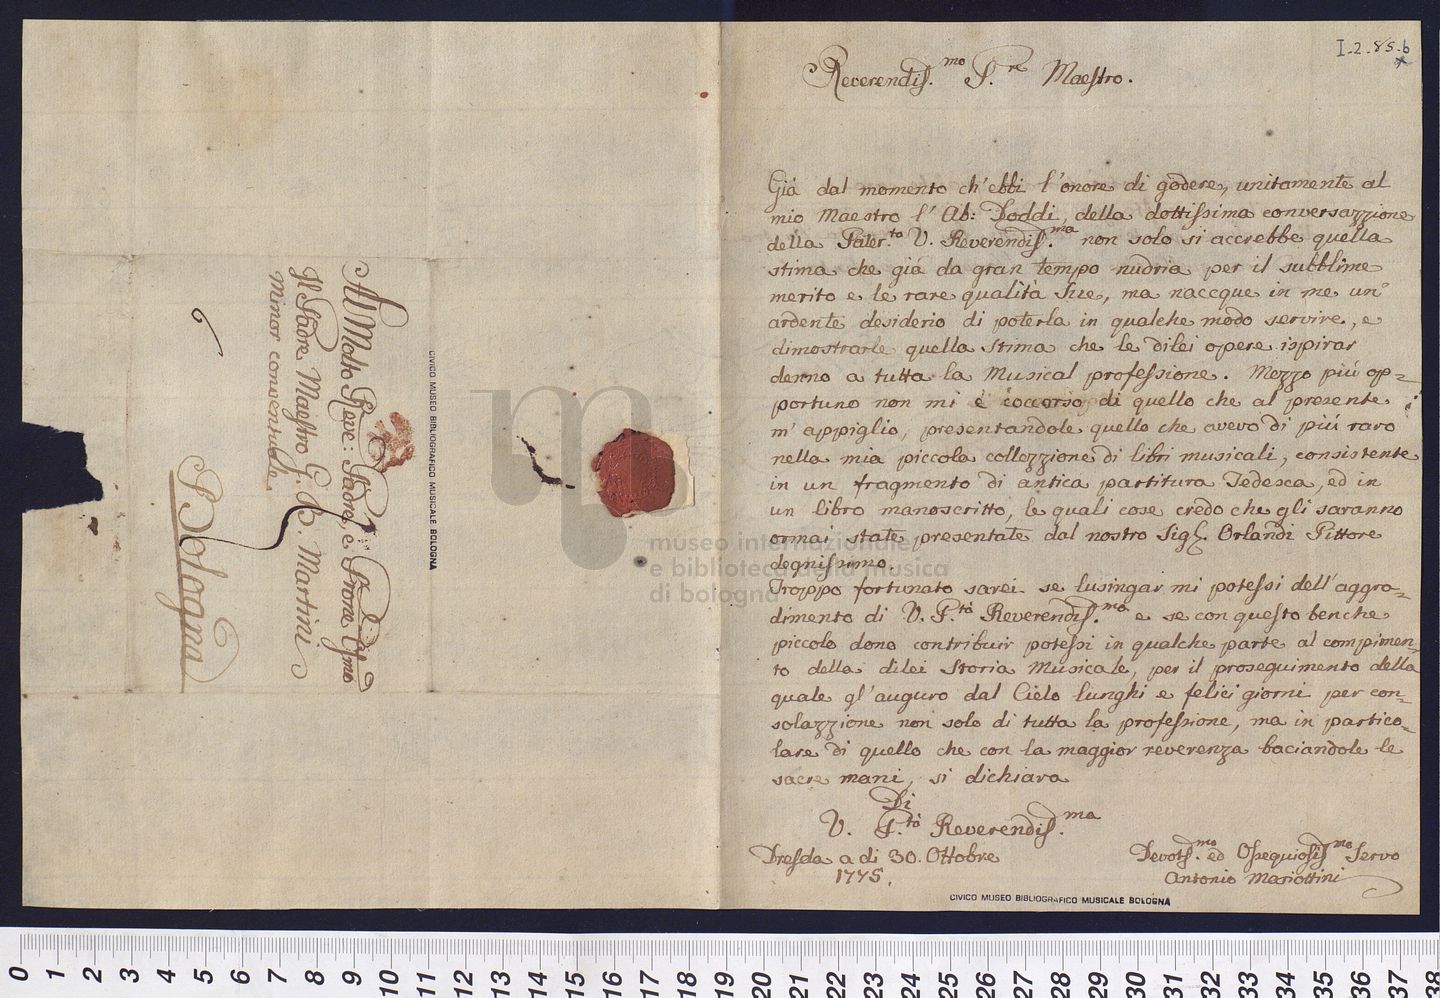 I-2-85-b
Reverendiss.mo P.re Maestro.
Già dal momento ch'ebbi l'onore di godere, unitamente al
mio Maestro l'Ab: Doddi, della dottissima conversazzione
della Pater.tà V. Reverendiss.ma non solo si accrebbe quella
stima che già da gran tempo nudria per il subblime
merito e le rare qualità Sue, ma nacque in me un'
ardente desiderio di poterla in qualche modo servire, e
dimostrarle quella stima che le dilei opere ispirar
denno a tutta la Musical professione. Mezzo più op=
portuno non mi è occorso di quello che al presente
m'appiglio, presentandole quello che avevo di più raro
nella mia piccola collezzione di libri musicali, consistente
in un fragmento di antica partitura Tedesca, ed in
un libro manoscritto, le quali cose credo che gli saranno
ormai state presentate dal nostro Sig.r Orlandi Pittore
degnissimo.
Troppo fortunato sarei se lusingar mi potessi dell'aggra=
dimento di V. P.tà Reverendiss.ma e se con questo benche
piccolo dono contribuir potessi in qualche parte al compimen=
to della dilei Storia Musicale, per il proseguimento della
quale gl'auguro dal Cielo lunghi e felici giorni per con=
solazzione non solo di tutta la professione, ma in partico=
lare di quello che con la maggior reverenza baciandole le
sacre mani, si dichiara
Di
V. P.tà Reverendiss.ma
Dresda a di 30. Ottobre
1775.
Devots.mo ed Ossequiosiss.mo Servo
Antonio Mariottini
CIVICO MUSEO BIBLIOGRAFICO MUSICALE BOLOGNA
Al Molto Reve: Padre, e Prone
Il Padre Maestro G. B. Martini
Minor conventuale.
Bologna
CIVICO MUSEO BIBLIOGRAFICO MUSICALE BOLOGNA
museo internazionale
e biblioteca della musica
di bologna
0 1 2 3 4 5 6 7 8 9 10 11 12 13 14 15 16 17 18 19 20 21 22 23 24 25 26 27 28 29 30 31 32 33 34 35 36 37 38